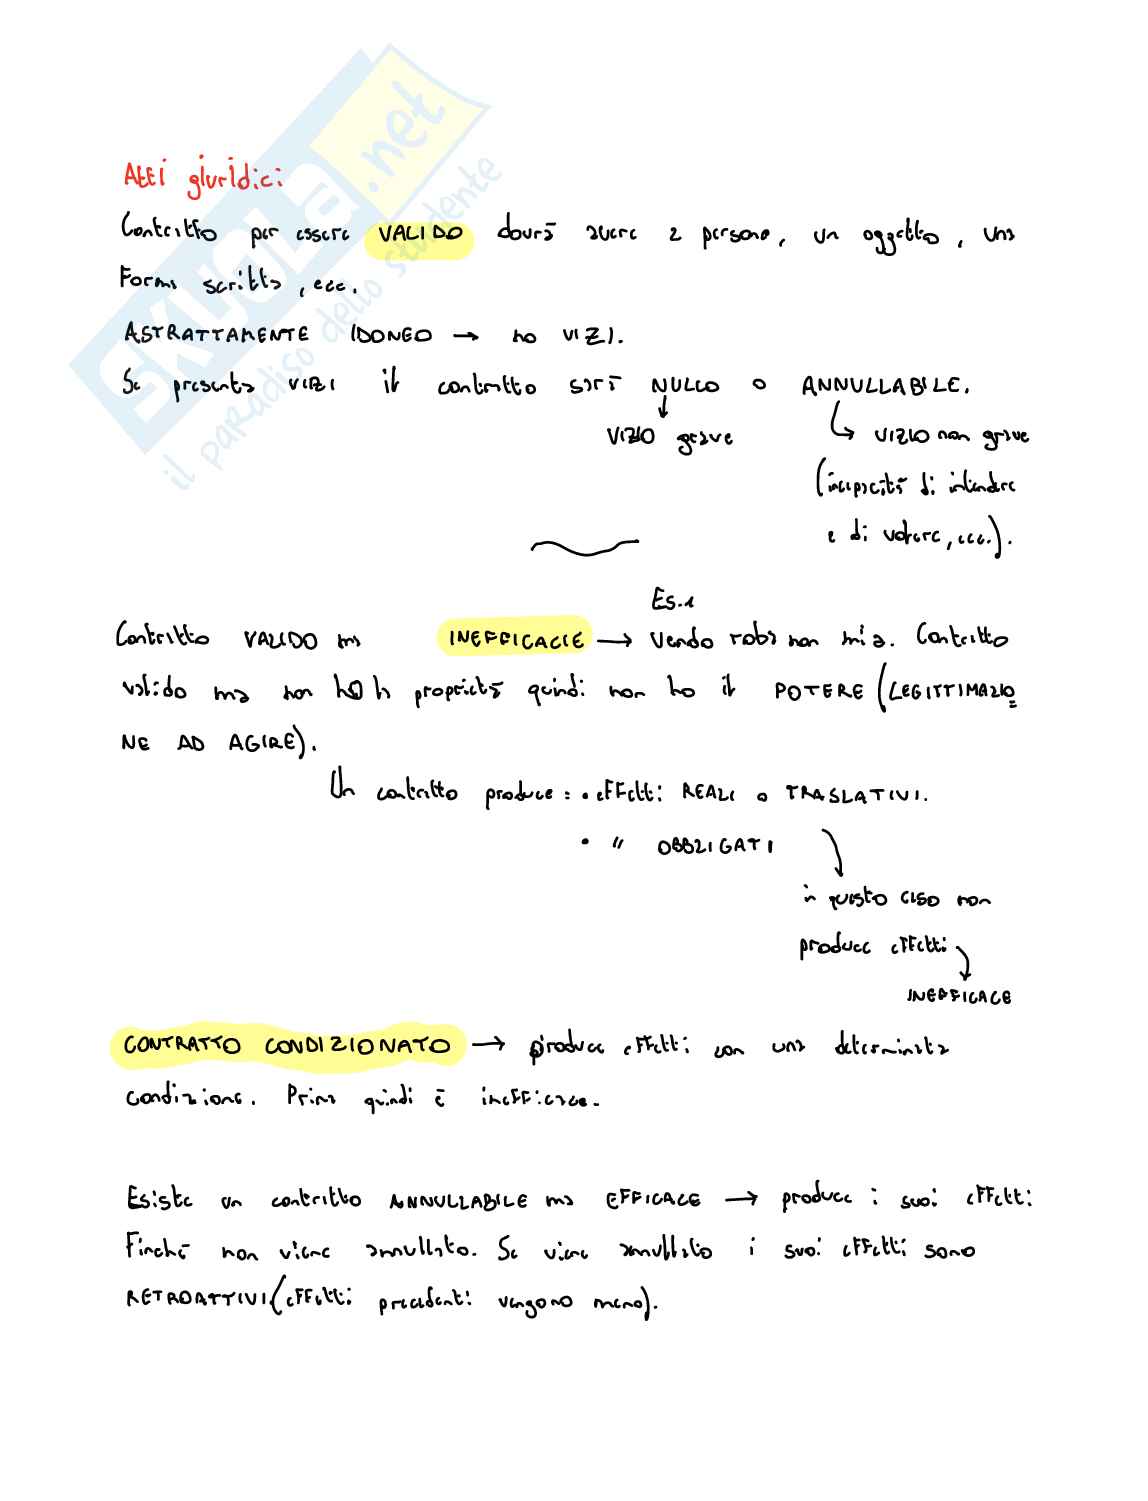 SKUOLA.net
il paradiso dello studente
Atti giuridici:
Contratto per essere VALIDO dovrà avere 2 persone, un oggetto, una
forma scritta, ecc.
ASTRATTAMENTE IDONEO → no VIZI.
Se presenta VIZI il contratto sarà NULLO o ANNULLABILE.
VIZIO grave
VIZIO non grave
(incapacità di intendere
e di volere, ecc.).
Es.1
Contratto VALIDO ma INEFFICACIE → Vendo roba non mia. Contratto
valido ma non ho la proprietà quindi non ho il POTERE (LEGITTIMAZIO
NE AD AGIRE).
Un contratto produce: • effetti REALI o TRASLATIVI.
• " OBBLIGATI
in questo caso non
produce effetti
INEFFICACE
CONTRATTO CONDIZIONATO → produce effetti con una determinata
condizione. Prima quindi è inefficace.
Esiste un contratto ANNULLABILE ma EFFICACE → produce i suoi effetti
finché non viene annullato. Se viene annullato i suoi effetti sono
RETROATTIVI. (effetti precedenti vengono meno).